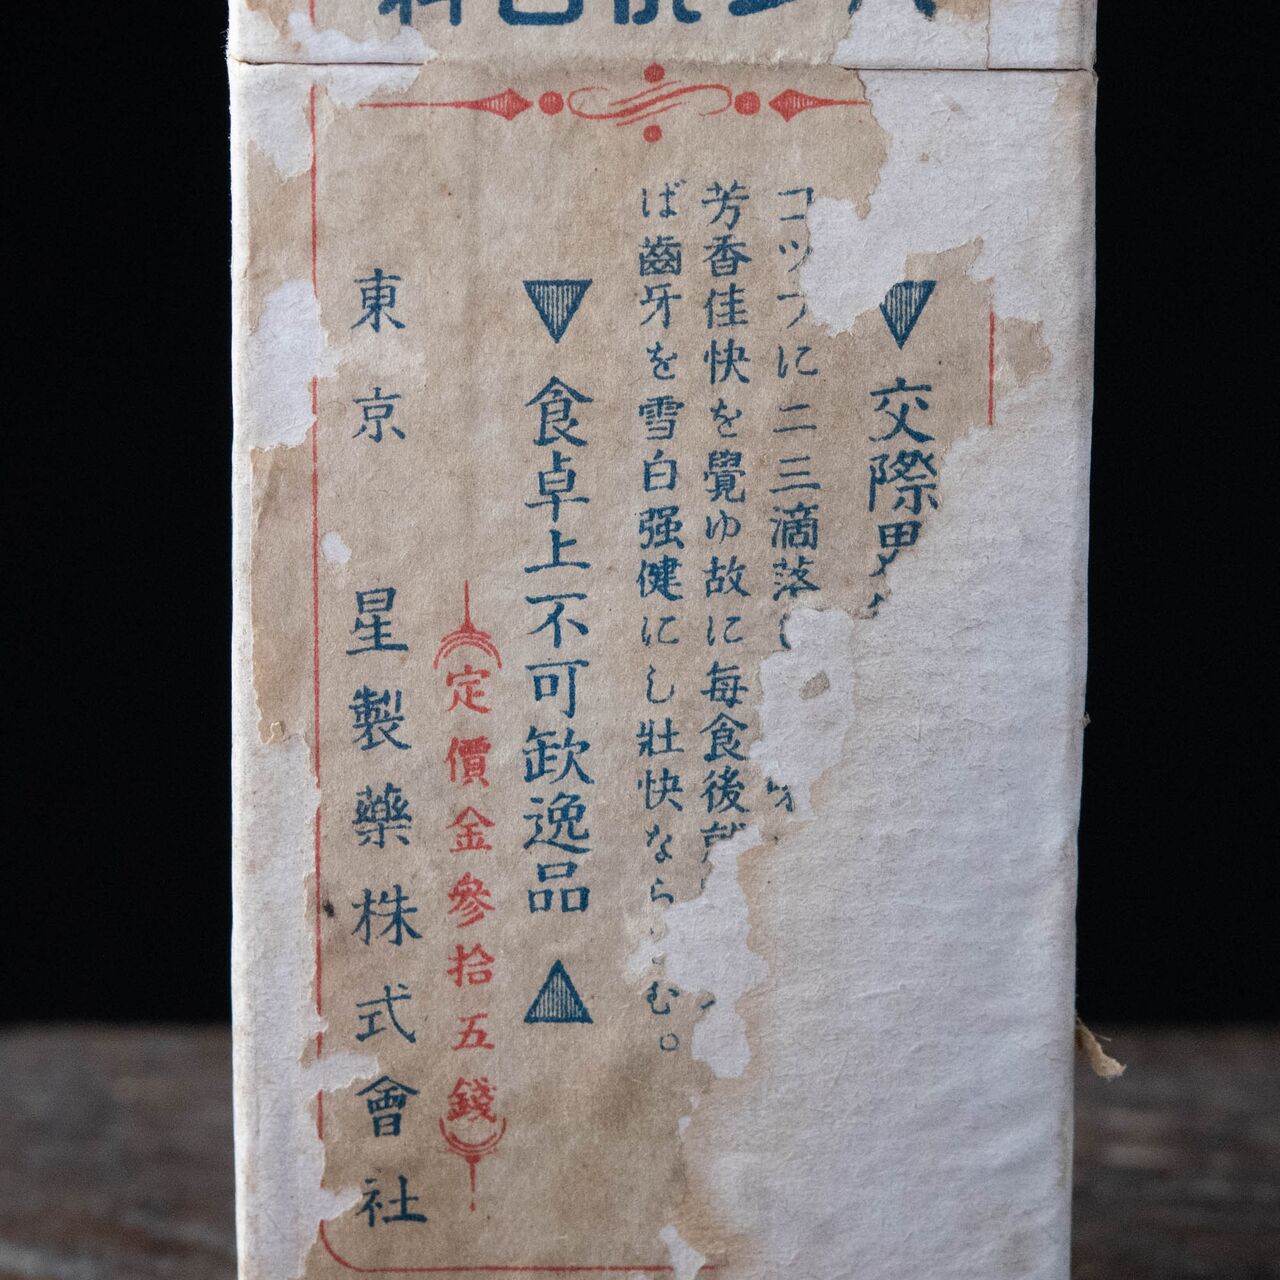 ▼交際
コツプに二三滴落
芳香佳快を覺ゆ故に每食後
ば齒牙を雪白强健にし壯快なら む。
▼食卓上不可欽逸品▲
定價金參拾五錢
東京 星製藥株式會社